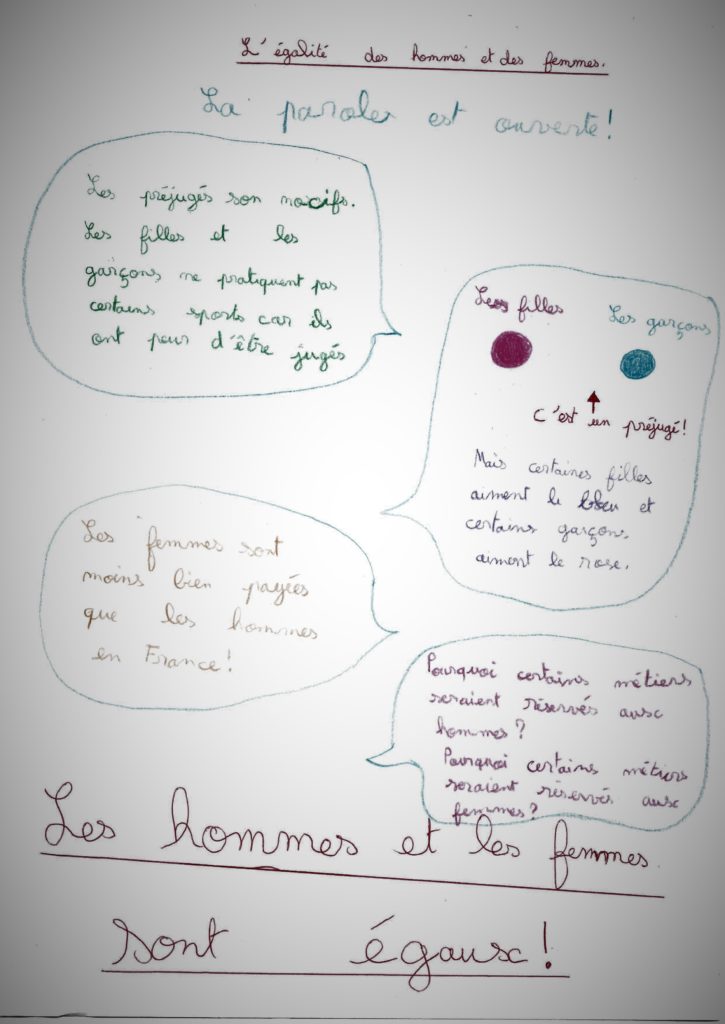 L'égalité des hommes et des femmes.
La paroles est ouverte!
Les préjugés son nocifs.
Les filles et les
garçons ne pratiquent pas
certains sports car ils
ont peur d'être jugés
Les filles
Les garçons
C'est un préjugé!
Mais certaines filles
aiment le bleu et
certains garçons
aiment le rose.
Les femmes sont
moins bien payées
que les hommes
en France!
Pourquoi certains métiers
seraient réservés aux
hommes?
Pourquoi certains métiers
seraient réservés aux
femmes?
Les hommes et les femmes
sont égaux!